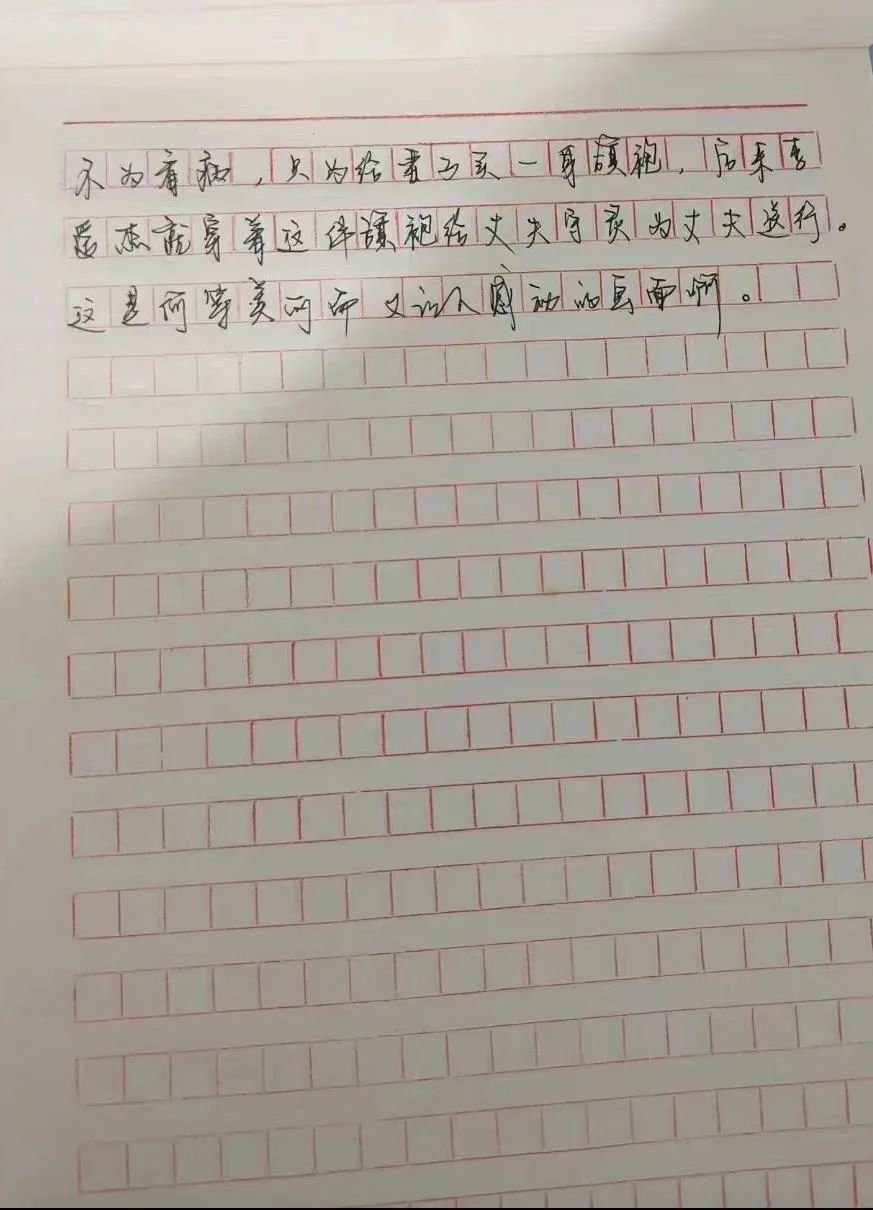 不为看病，只为给妻子买一身旗袍，后来李
爱杰就穿着这件旗袍给丈夫守灵为丈夫送行。
这是何等美丽而又让人感动的画面啊。